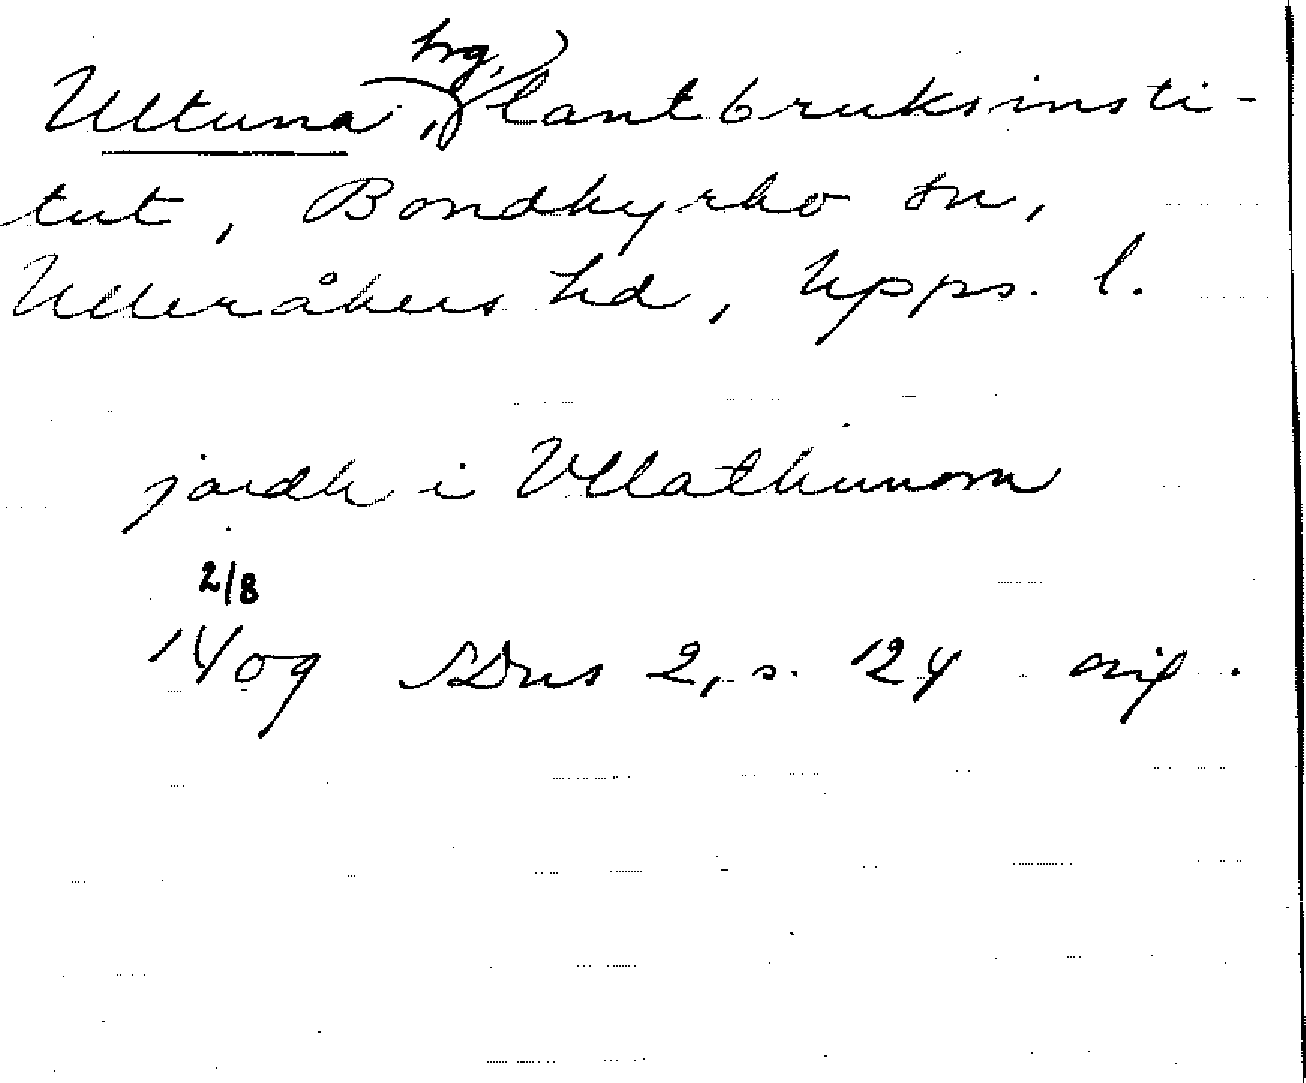 hrg.
Ultuna, lantbruksinsti-
tut, Bondkyrko sn,
Ulleråkers hd, Upps. l.
jordh i Vllathunom
2/8
1409 SDns 2, s. 124 orig.